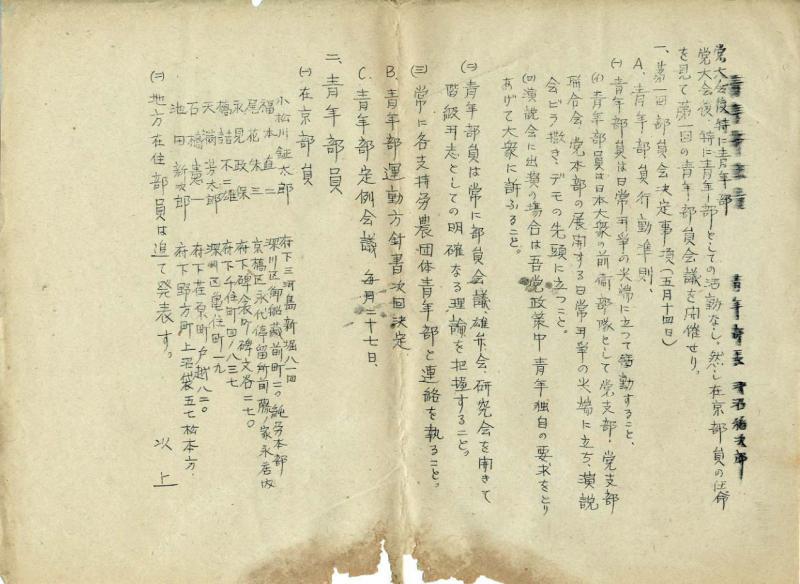 青年部長 浅沼稲次郎
党大会後特に青年部
党大会後、特に青年部としての活動なし。然し在京部員の任命
を見て第一回の青年部員会議を開催せり。
一、第一回部員会決定事項(五月十四日)
A、青年部員行動準則、
㈠青年部員は日常斗争の尖端に立つて活動すること、
(イ)青年部員は日本大衆の前衛部隊として党支部・党支部
聯合会党本部の展開する日常斗争の尖端に立ち、演説
会ビラ撒き、デモの先頭に立つこと。
(ロ)演説会に出演の場合は吾党政策中青年独自の要求をとり
あげて大衆に訴ふること。
㈡青年部員は常に部員会議雄弁会、研究会を開きて
階級斗志としての明確なる理論を把握すること。
㈢常に各支持労農団体青年部と連絡を執ること。
B、青年部運動方針書次回決定
C、青年部定例会議 毎月二十七日、
二、青年部員
㈠在京部員
小松川鉦太郎 府下三河島新堀八一回
福本直二 深川区御船蔵前町二〇純労本部
尾花朱三 京橋区永代停留所前藤ノ家永居内
永見政保 府下碑衾町碑文谷二七〇
橋詰不二雄 府下千住町四ノ八三七
天満芳太郎 深川区亀住町一九
石橋憲 府下荏原町戸越八二〇
池田新次郎 府下野方町上沼袋五七柗本方、
㈡地方在住部員は追て発表す。
以上